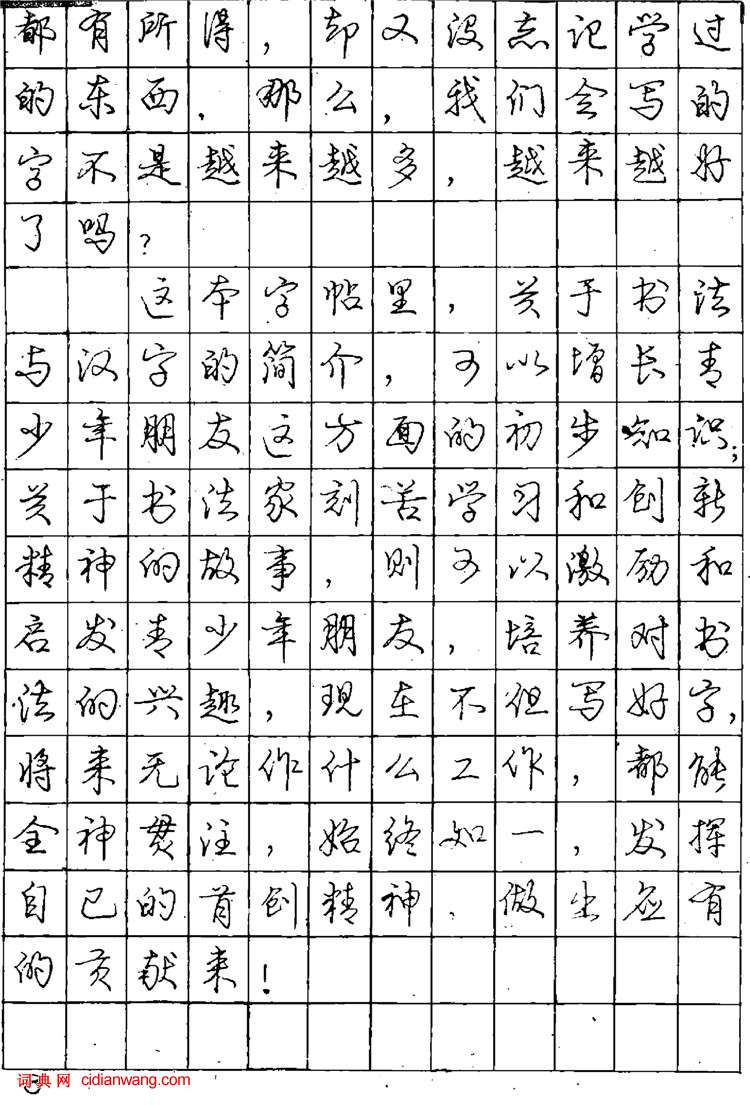 都有所得，却又没忘记学过
的东西，那么，我们会写的
字不是越来越多，越来越好
了吗？
这本字帖里，关于书法
与汉字的简介，可以增长青
少年朋友这方面的初步知识；
关于书法家刻苦学习和创新
精神的故事，则可以激励和
启发青少年朋友，培养对书
法的兴趣，现在不但写好字，
将来无论作什么工作，都能
全神贯注，始终如一，发挥
自己的首创精神，做出应有
的贡献来！
词典网 cidianwang.com